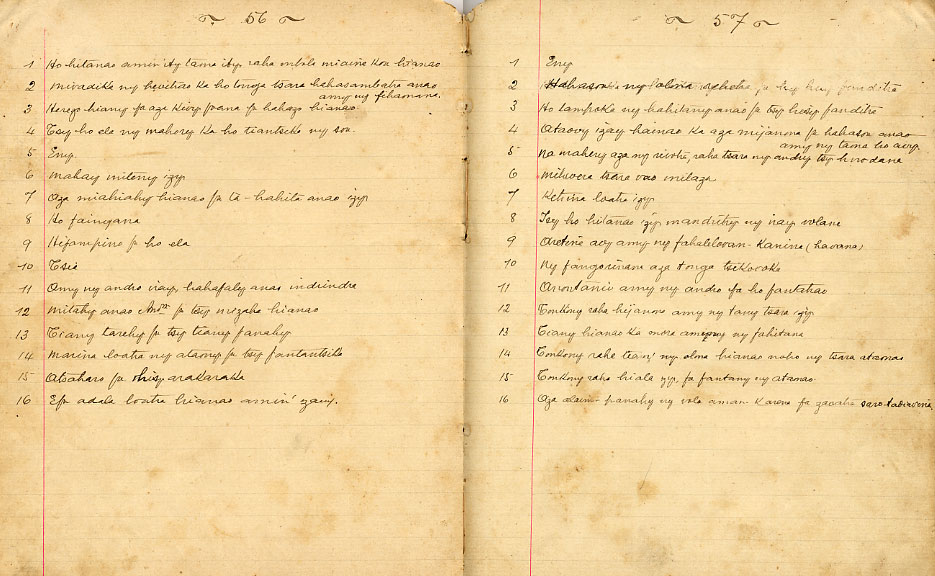 56
1 Ho hitanao amin'ity tama ity, raha mbola miaina koa hianao
2 Mivadika ny hevitrao ka ho tonga tsara hahasambatra anao
amy ny fiharaana.
3 Herezo hiany fa aza kivy fana fa hahazo hianao
4 Tsy ho ela ny mahory ka ho tiantsika ny soa.
5 Eny.
6 Mahay miteny izy.
7 Aza miahiahy hianao fa tà-hahita anao izy
8 Ho faingana
9 Hifampino fa ho ela
10 Tsia
11 Amy ny andro iray, hahafaly anao indrindra
12 Mitaky anao fa tsy mizaha hianao
13 Tiany tarehy fa tsy tiany fanahy
14 Marina loatra ny ataony fa tsy fantantsika
15 Atsaharo fa misy arakaraka
16 Efa adala loatra hianao amin' izany.
57
1 Eny
2 ny fa handitra
3 Ho lanjaka ny hahitany anao fa tsy handitra
4 Ataovy izay hainao ka aza mijanona fa hahasoa anao
amy ny tama ho avy.
5 Na mahery aza ny rivotra, raha tsara ny andry tsy hirodana
6 Mitsoera tsara vao milaza
7 Ketrina loatra izy
8 Tsy ho hitanao izy mandritry ny iray volana
9 Aretina avy amy ny fahalilovan-kanina (havana)
10 Ny fangorinana aza tonga tsikoroka
11 Anontanio amy ny andro fa ho fantatrao
12 Tonkony raha hijanona amy ny tany tsara izy
13 Tiany hianao ka more ny fahitana
14 Tonkony raha tean' ny olona hianao noho ny tsara ataonao
15 Tonkony raha hiala izy, fa fantany ny ataonao
16 Aza fanahy ny volo aman-karena fa zavatra sarotadiavina